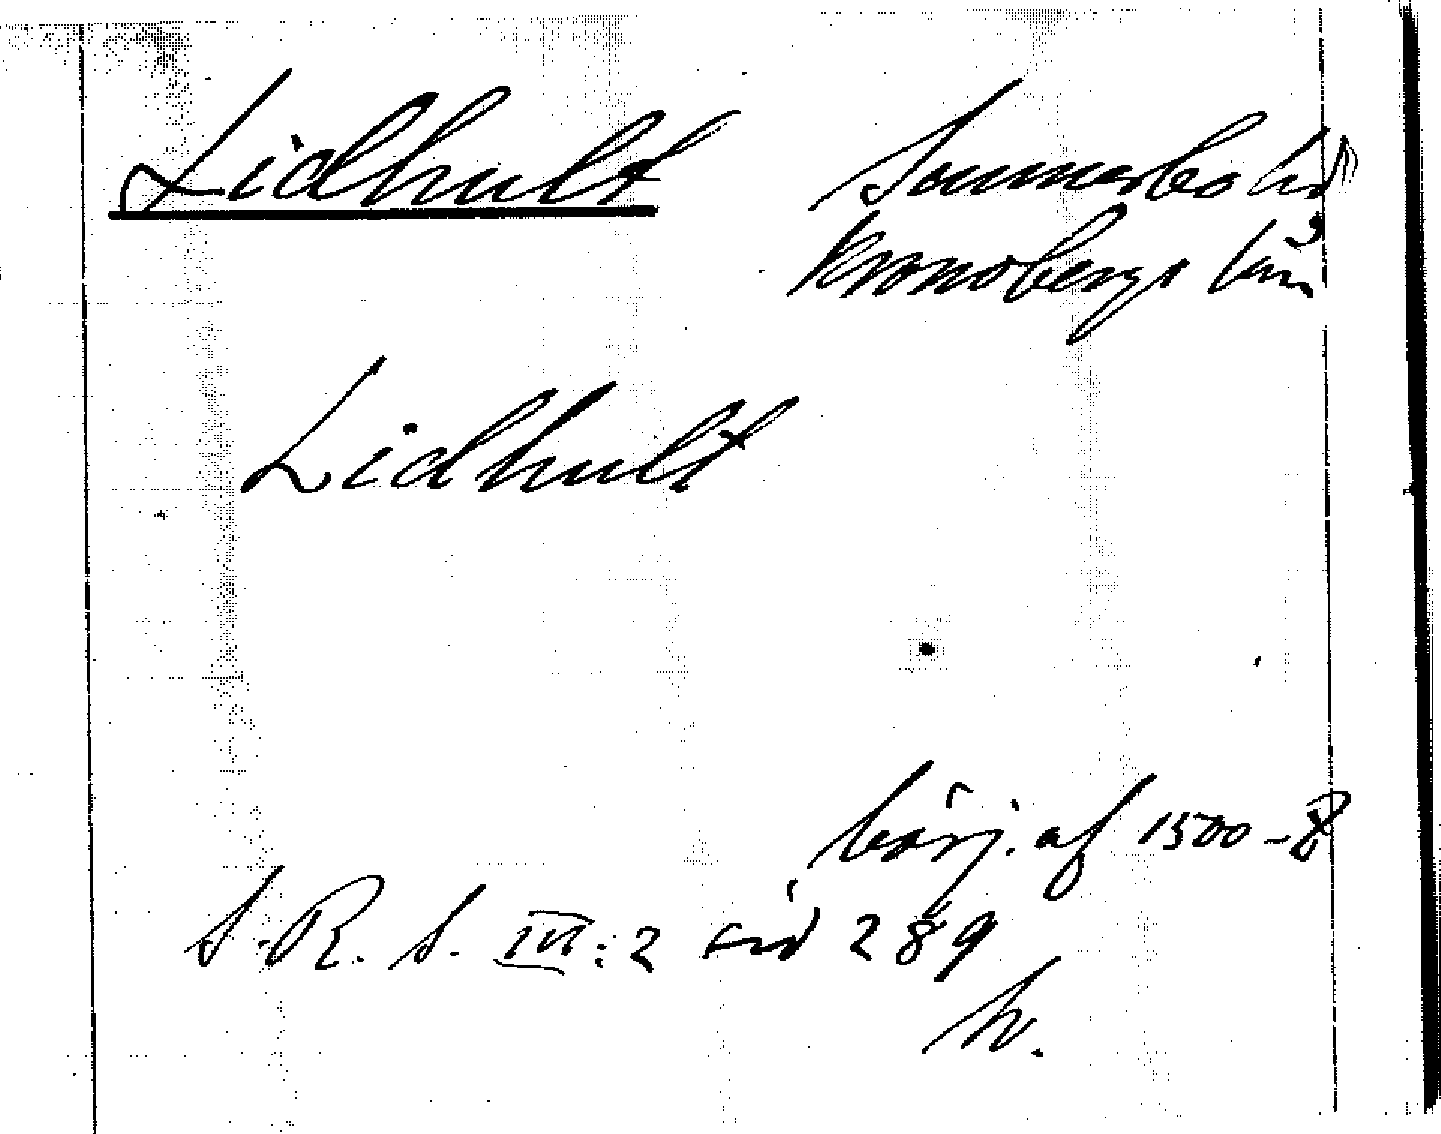 Lidhult Sunnerbo hd
Kronobergs län
Lidhult
börj. af 1500-t
S. R. S. III:2 sid 289
hr.